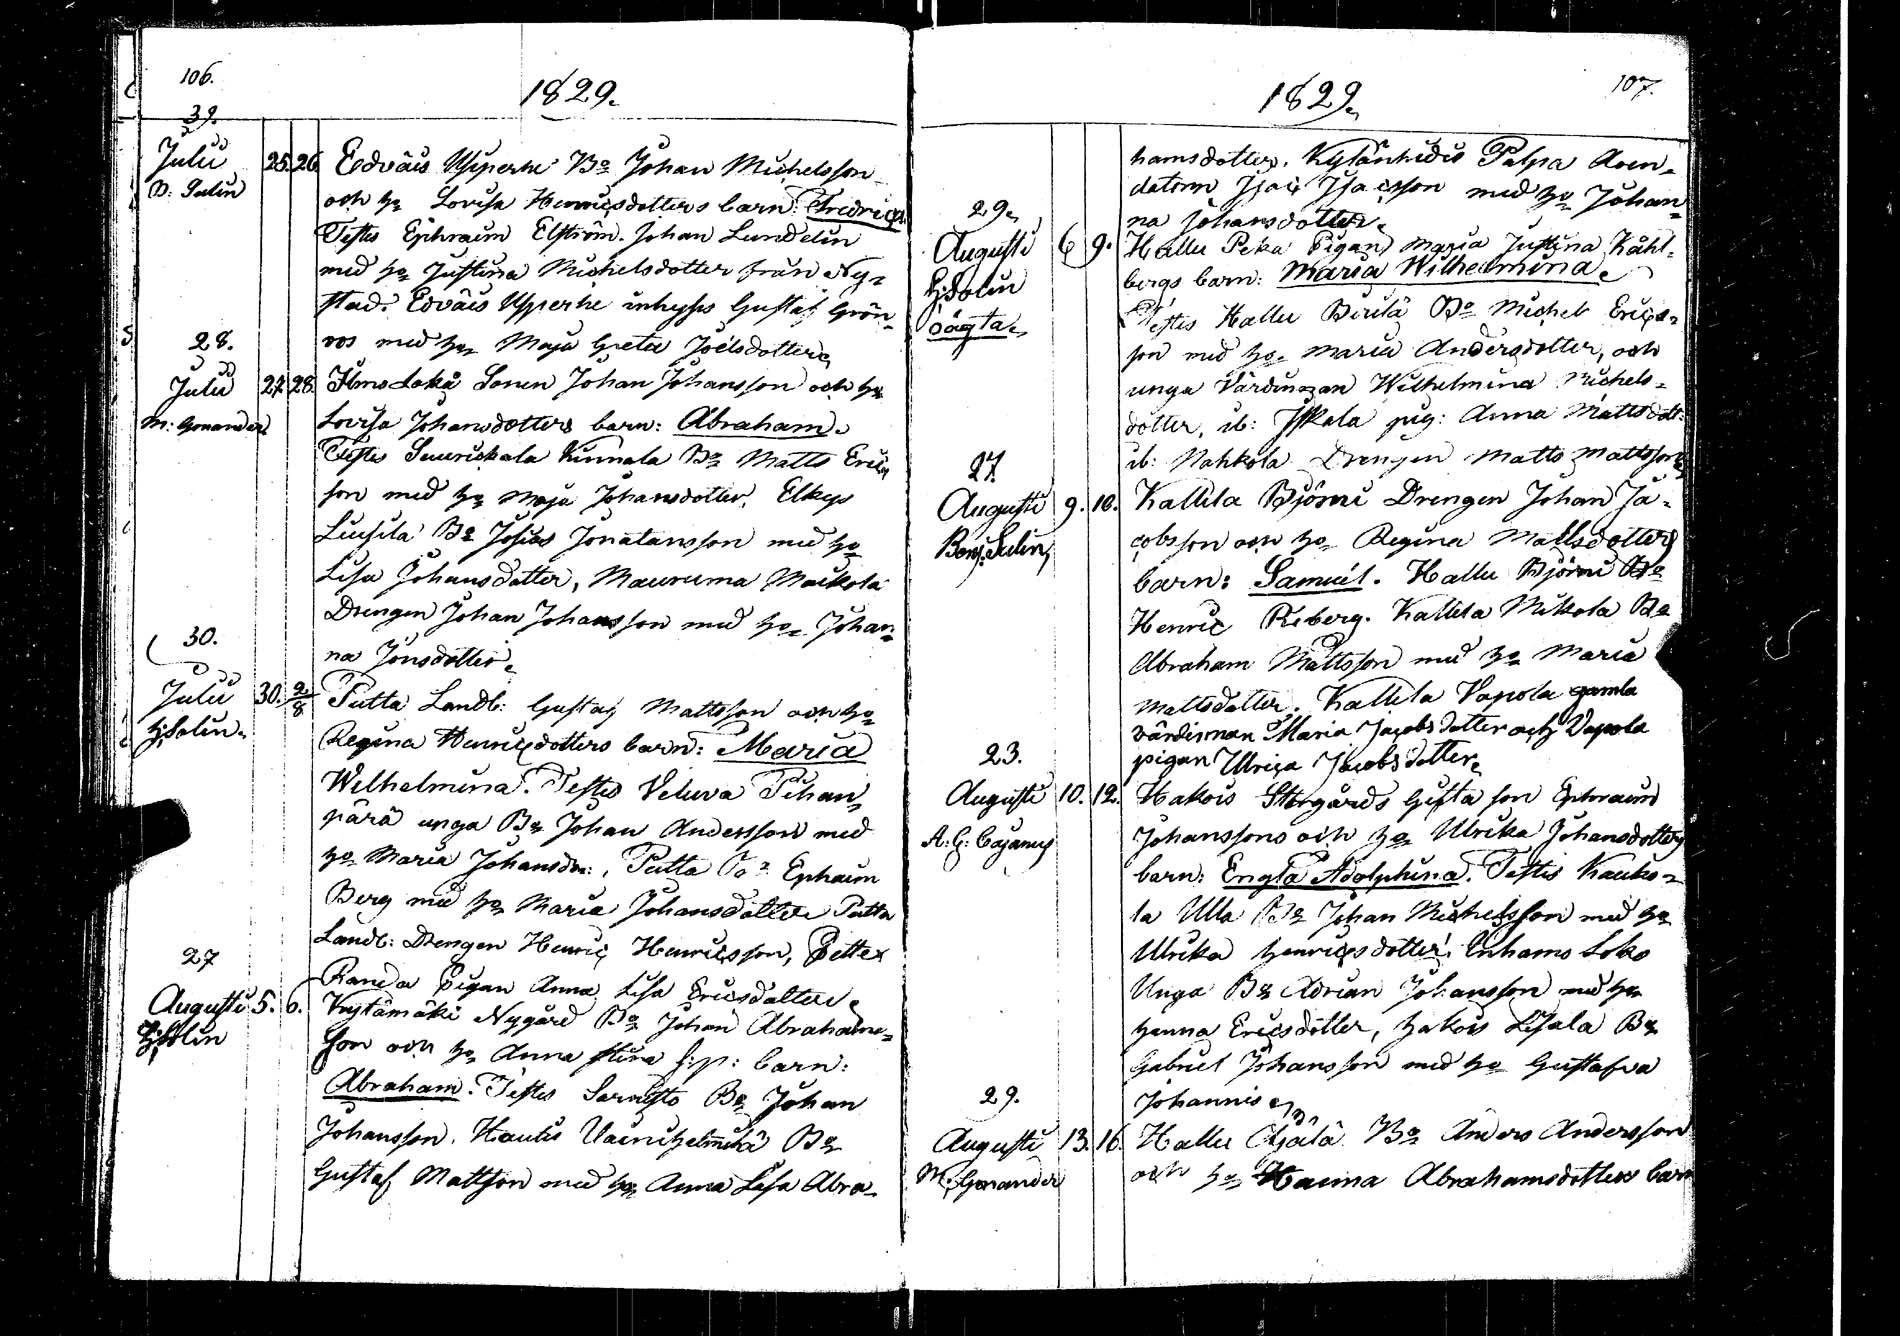 106.
1829.
39.
Julii 25. 26. Edvais Ylsperhe Bo Johan Michelsson
D: Salin och ho Lovisa Henricsdotters barn: Fredrica
Testes Ephraim Elström. Johan Lundelin
med ho Justina Michelsdotter från Ny-
stad. Edvais Ylsperhe inhyses Gustaf Grön-
28.
roos med ho Maja Greta Joëlsdotter
Julii 27. 28. Loko Sonen Johan Johansson och ho
M: Gonander Lovisa Johansdotters barn: Abraham.
Testes Suurickala Kinnala Bo Matts Eric
son med ho Maja Johansdotter, Elkys
Bo Josias Jonatansson med ho
Lisa Johansdotter, Mauruma Maikola
Drengen Johan Johansson med ho Johan-
30.
na Jönsdotter.
Julii 30. 2/8 Putta Landb: Gustaf Mattsson och ho
H: Salin. Regina Henricsdotters barn: Maria
Wilhelmina. Testes Veluva Pihan-
pärä unga Bo Johan Andersson med
ho Maria Johansdr:, Putta Bo Ephraim
Berg med ho Maria Johansdotter Putta
27
Landb: Drengen Henric Henricsson, Petter
Randa Pigan Anna Lisa Ericsdotter
Augusti 5. 6. Kytämäki Nygård Bo Johan Abrahams-
H: Salin son och ho Anna Stina barn:
Abraham. Testes Sarvisto Bo Johan
Johansson. Hautis Bo
Gustaf Mattson med ho Anna Lisa Abra-
107.
1829.
hamsdotter. Palpa Aren-
datorn Isac Isacsson med ho Johan-
29.
na Johansdotter.
Augusti 6 9. Hallu Peka Pigan Maria Justina Kåhl-
H: Salin bergs barn: Maria Wilhelmina.
oägta. Testes Hallu Birilä Bo Michel Erics-
son med ho Maria Andersdotter, och
unga Värdinnan Wilhelmina Michels-
dotter, ib: Iskala pig: Anna Mattsdott:
27.
ib: Nahkola Drengen Matts Mattsson
Augusti 9. 10. Kallela Björni Drengen Johan Ja-
Benj: Salin cobsson och ho Regina Mattsdotters
barn: Samuel. Hallu Björni Bo
Henric Reberg. Kallela Mikola Bo
Abraham Mattsson med ho Maria
Mattsdotter. Kallela Vapola gamla
värdinnan Maria Jacobsdotter och Vapola
23.
pigan Ulrica Jacobsdotter
Augusti 10. 12. Hakois Storgårds Gusta son Ephraim
A: G: Cajanus Johanssons och ho Ulrika Johansdotters
barn: Engla Adolphina. Testes Kauko-
la Ulla Bo Johan Michelsson med ho
Ulrika Henricsdotter. Loko
Unga Bo Adrian Johansson med ho
Hanna Ericsdotter, Hakois Bo
Gabriel Johansson med ho Gustafva
29.
Johannis
Augusti 13. 16. Hallu Äjälä Bo Anders Andersson
M. Gonander och ho Hanna Abrahamsdotters barn